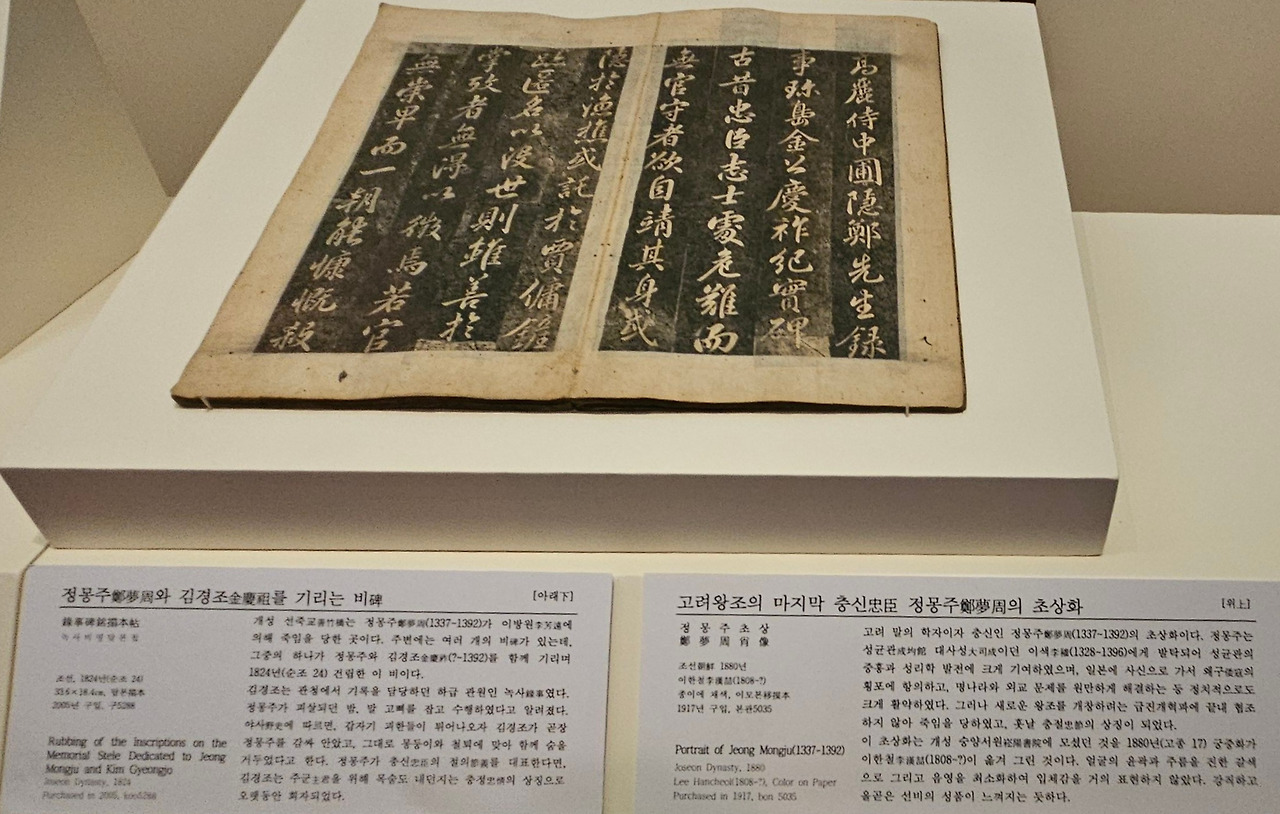 高麗侍中圃隱鄭先生録
事珎島金公慶祚紀實碑
古昔忠臣志士處危難而
無官守者欲自靖其身或
隱於漁樵或託於賈傭雖
匿名以没世則雖善於
掌攷者無渌以徵焉若官
無崇卑而一朝能慷慨殺
정몽주鄭夢周와 김경조金慶祖를 기리는 비碑 [아래下]
錄事碑銘搨本帖
녹사비명탑본첩
조선, 1824년(순조 24)
33.6×18.4cm, 탑본搨本
2005년 구입, 구5288
Rubbing of the Inscriptions on the
Memorial Stele Dedicated to Jeong
Mongju and Kim Gyeongjo
Joseon Dynasty, 1824
Purchased in 2005, koo5288
개성 선죽교善竹橋는 정몽주鄭夢周(1337-1392)가 이방원李芳遠에
의해 죽임을 당한 곳이다. 주변에는 여러 개의 비碑가 있는데,
그중의 하나가 정몽주와 김경조金慶祚(?-1392)를 함께 기리며
1824년(순조 24) 건립한 이 비이다.
김경조는 관청에서 기록을 담당하던 하급 관원인 녹사錄事였다.
정몽주가 피살되던 밤, 말 고삐를 잡고 수행하였다고 알려졌다.
야사野史에 따르면, 갑자기 괴한들이 튀어나오자 김경조가 곧장
정몽주를 감싸 안았고, 그대로 몽둥이와 철퇴에 맞아 함께 숨을
거두었다고 한다. 정몽주가 충신忠臣의 절의節義를 대표한다면,
김경조는 주군主君을 위해 목숨도 내던지는 충정忠情의 상징으로
오랫동안 회자되었다.
고려왕조의 마지막 충신忠臣 정몽주鄭夢周의 초상화 [위上]
정몽주초상
鄭夢周肖像
조선朝鮮 1880년
이한철李漢喆(1808-?)
종이에 채색, 이모본移摸本
1917년 구입, 본관5035
Portrait of Jeong Mongju(1337-1392)
Joseon Dynasty, 1880
Lee Hancheol(1808-?), Color on Paper
Purchased in 1917, bon 5035
고려 말의 학자이자 충신인 정몽주鄭夢周(1337-1392)의 초상화이다. 정몽주는
성균관成均館 대사성大司成이던 이색李穡(1328-1396)에게 발탁되어 성균관의
중흥과 성리학 발전에 크게 기여하였으며, 일본에 사신으로 가서 왜구倭寇의
횡포에 항의하고, 명나라와 외교 문제를 원만하게 해결하는 등 정치적으로도
크게 활약하였다. 그러나 새로운 왕조를 개창하려는 급진개혁파에 끝내 협조
하지 않아 죽임을 당하였고, 훗날 충절忠節의 상징이 되었다.
이 초상화는 개성 숭양서원崧陽書院에 모셨던 것을 1880년(고종 17) 궁중화가
이한철李漢喆(1808-?)이 옮겨 그린 것이다. 얼굴의 윤곽과 주름을 진한 갈색
으로 그리고 음영을 최소화하여 입체감을 거의 표현하지 않았다. 강직하고
올곧은 선비의 성품이 느껴지는 듯하다.